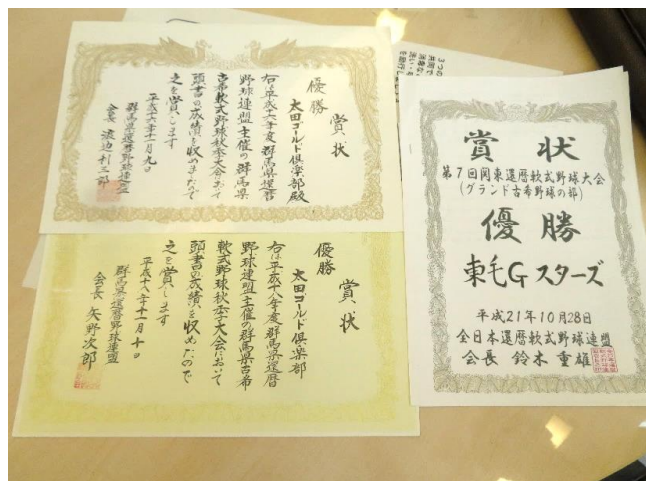 賞状
優勝
太田ゴールド倶楽部殿
右は平成十六年度群馬県還暦
野球連盟主催の群馬県
古希軟式野球秋季大会おいて
頭書の成績を収めましたので
之を賞します
平成十六年十一月九日
群馬県還暦野球連盟
会長 渡辺利三郎
賞状
優勝
太田ゴールド倶楽部
右は平成十八年度群馬県還暦
野球連盟主催の群馬県古希
軟式野球秋季大会において
頭書の成績を収めたので
之を賞します
平成十八年十一月十日
群馬県還暦野球連盟
会長 矢野次郎
賞状
第7回関東還暦軟式野球大会
(グランド古希野球の部)
優勝
東毛Gスターズ
平成21年10月28日
全日本還暦軟式野球連盟
会長 鈴木重雄